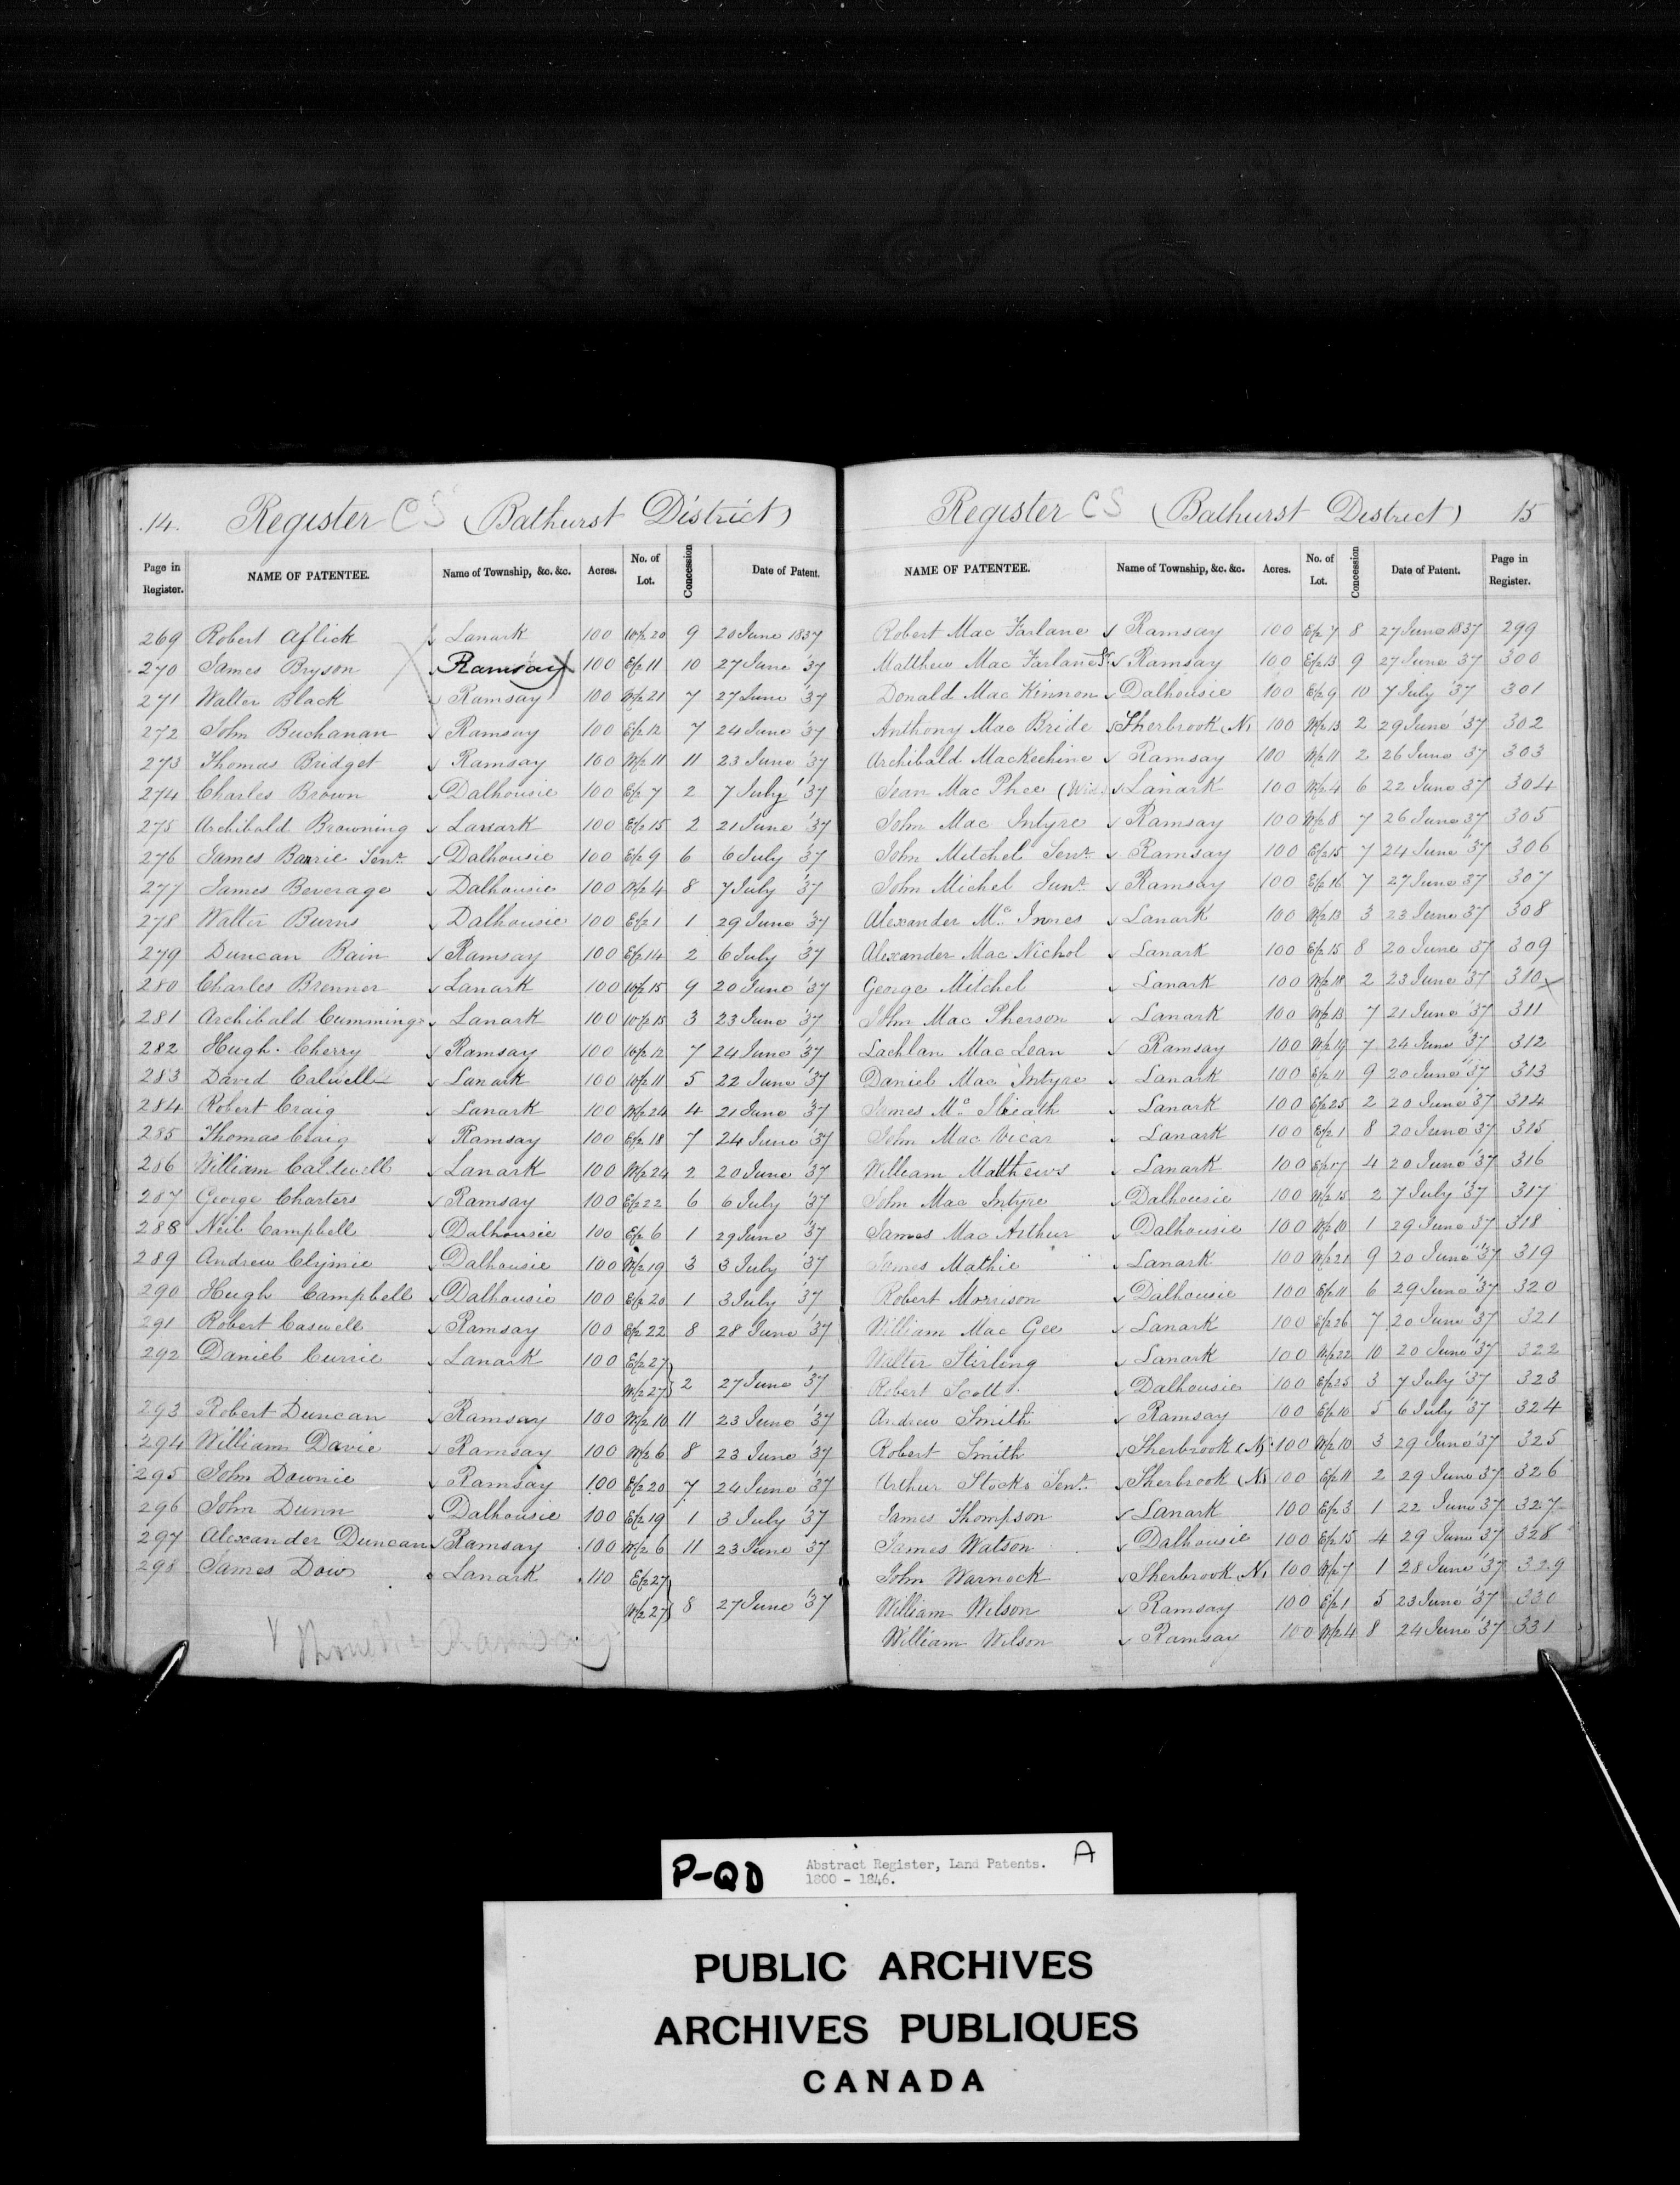 14. Register CS (Bathurst District)
Page in Register. NAME OF PATENTEE. Name of Township, &c. &c. Acres. No. of Lot. Concession Date of Patent.
269 Robert Aflick Lanark 100 W½ 20 9 20 June 1837
270 James Bryson Ramsay 100 E½ 11 10 27 June '37
271 Walter Black Ramsay 100 W½ 21 7 27 June '37
272 John Buchanan Ramsay 100 E½ 12 7 24 June '37
273 Thomas Bridget Ramsay 100 W½ 11 11 23 June '37
274 Charles Brown Dalhousie 100 E½ 7 2 7 July '37
275 Archibald Browning Lanark 100 E½ 15 2 21 June '37
276 James Barrie Senr. Dalhousie 100 E½ 9 6 6 July '37
277 James Beverage Dalhousie 100 W½ 4 8 7 July '37
278 Walter Burns Dalhousie 100 E½ 1 1 29 June '37
279 Duncan Bain Ramsay 100 E½ 14 2 6 July '37
280 Charles Brenner Lanark 100 W½ 15 9 20 June '37
281 Archibald Cummings Lanark 100 W½ 15 3 23 June '37
282 Hugh Cherry Ramsay 100 W½ 12 7 24 June '37
283 David Calwell Lanark 100 W½ 11 5 22 June '37
284 Robert Craig Lanark 100 W½ 24 4 21 June '37
285 Thomas Craig Ramsay 100 E½ 18 7 24 June '37
286 William Caldwell Lanark 100 W½ 24 2 20 June '37
287 George Charters Ramsay 100 E½ 22 6 6 July '37
288 Neil Campbell Dalhousie 100 E½ 6 1 29 June '37
289 Andrew Clymie Dalhousie 100 W½ 19 3 3 July '37
290 Hugh Campbell Dalhousie 100 E½ 20 1 3 July '37
291 Robert Caswell Ramsay 100 E½ 22 8 28 June '37
292 Daniel Currie Lanark 100 E½ 27
W½ 27 } 2 27 June '37
293 Robert Duncan Ramsay 100 W½ 10 11 23 June '37
294 William Davie Ramsay 100 W½ 6 8 23 June '37
295 John Downie Ramsay 100 E½ 20 7 24 June '37
296 John Dunn Dalhousie 100 E½ 19 1 3 July '37
297 Alexander Duncan Ramsay 100 W½ 6 11 23 June '37
298 James Dow Lanark 110 E½ 27
W½ 27 } 8 27 June '37
Ramsay
Register CS (Bathurst District) 15
NAME OF PATENTEE. Name of Township, &c. &c. Acres. No. of Lot. Concession Date of Patent. Page in Register.
Robert Mac Farlane Ramsay 100 E½ 7 8 27 June 1837 299
Matthew Mac Farlane Sr. Ramsay 100 E½ 13 9 27 June 37 300
Donald Mac Kinnon Dalhousie 100 E½ 9 10 7 July '37 301
Anthony Mac Bride Sherbrook (N) 100 W½ 13 2 29 June '37 302
Archibald MacKechine Ramsay 100 W½ 11 2 26 June 37 303
Jean Mac Phee (Wid) Lanark 100 W½ 4 6 22 June 37 304
John Mac Intyre Ramsay 100 W½ 8 7 26 June 37 305
John Mitchel Senr. Ramsay 100 E½ 15 7 24 June '37 306
John Michel Junr. Ramsay 100 E½ 16 7 27 June 37 307
Alexander Mc. Innes Lanark 100 W½ 13 3 23 June 37 308
Alexander Mac Nichol Lanark 100 E½ 15 8 20 June 37 309
George Mitchel Lanark 100 W½ 18 2 23 June '37 310 x
John Mac Pherson Lanark 100 W½ 13 7 21 June '37 311
Lachlan Mac Lean Ramsay 100 W½ 19 7 24 June '37 312
Daniel Mac Intyre Lanark 100 E½ 11 9 20 June '37 313
James Mc. Ilreath Lanark 100 E½ 25 2 20 June '37 314
John Mac Vicar Lanark 100 E½ 1 8 20 June '37 315
William Matthews Lanark 100 E½ 17 4 20 June '37 316
John Mac Intyre Dalhousie 100 W½ 15 2 7 July '37 317
James Mac Arthur Dalhousie 100 W½ 10 1 29 June '37 318
James Mathie Lanark 100 W½ 21 9 20 June '37 319
Robert Morrison Dalhousie 100 E½ 11 6 29 June '37 320
William Mac Gee Lanark 100 E½ 26 7 20 June '37 321
Walter Stirling Lanark 100 W½ 22 10 20 June '37 322
Robert Scott Dalhousie 100 E½ 25 3 7 July '37 323
Andrew Smith Ramsay 100 E½ 10 5 6 July '37 324
Robert Smith Sherbrook (N) 100 W½ 10 3 29 June '37 325
Arthur Stocks Senr. Sherbrook (N) 100 E½ 11 2 29 June 37 326
James Thompson Lanark 100 E½ 3 1 22 June 37 327
James Watson Dalhousie 100 E½ 15 4 29 June 37 328
John Warnock Sherbrook (N) 100 W½ 7 1 28 June '37 329
William Wilson Ramsay 100 E½ 1 5 23 June '37 330
William Wilson Ramsay 100 W½ 4 8 24 June '37 331
P-QD Abstract Register, Land Patents. A
1800 - 1846.
PUBLIC ARCHIVES
ARCHIVES PUBLIQUES
CANADA